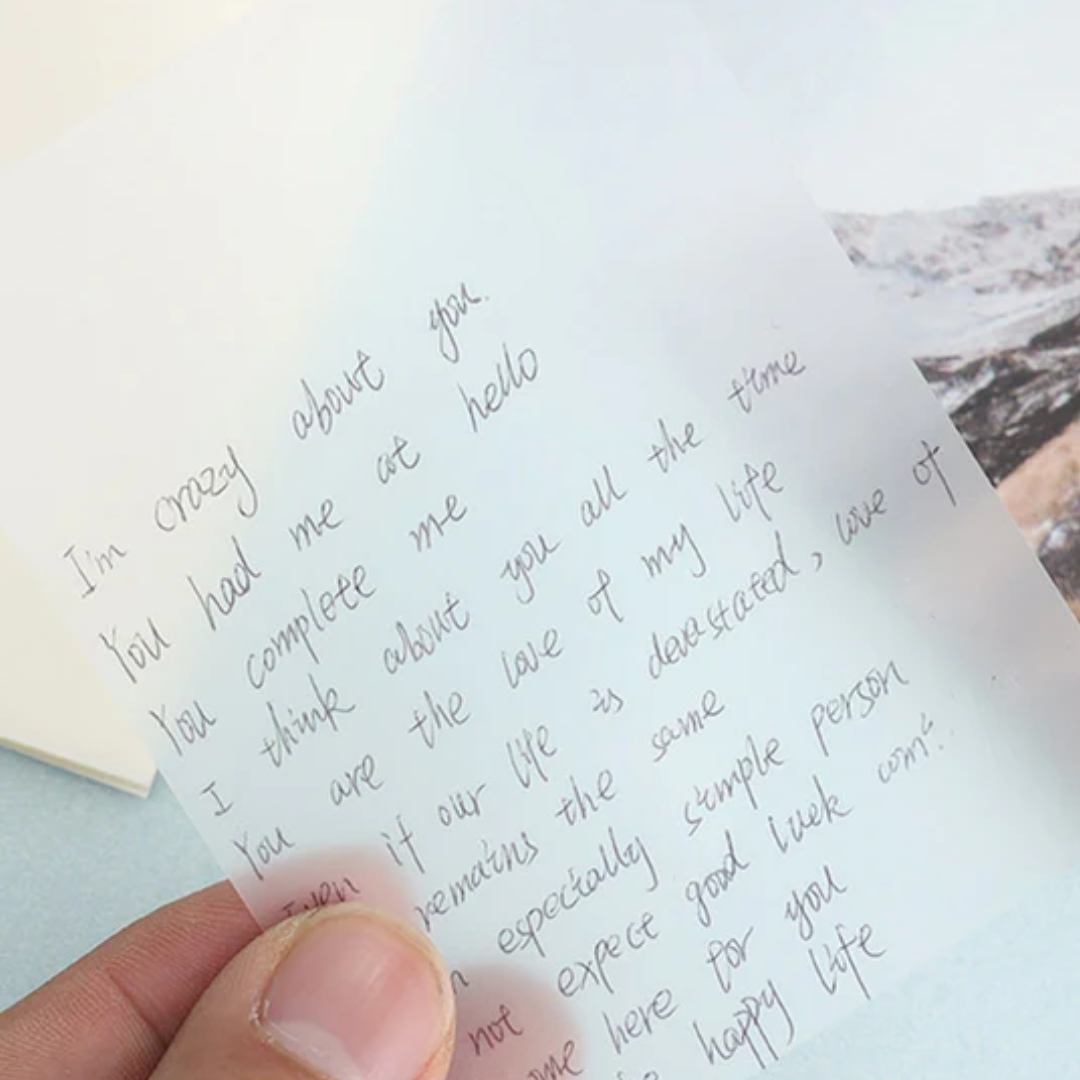 I'm crazy about you.
You had me at hello
You complete me
I think about you all the time
You are the love of my life
Even if our life is devastated, love of
remains the same
especially simple person
not expect good luck
here for you
happy life